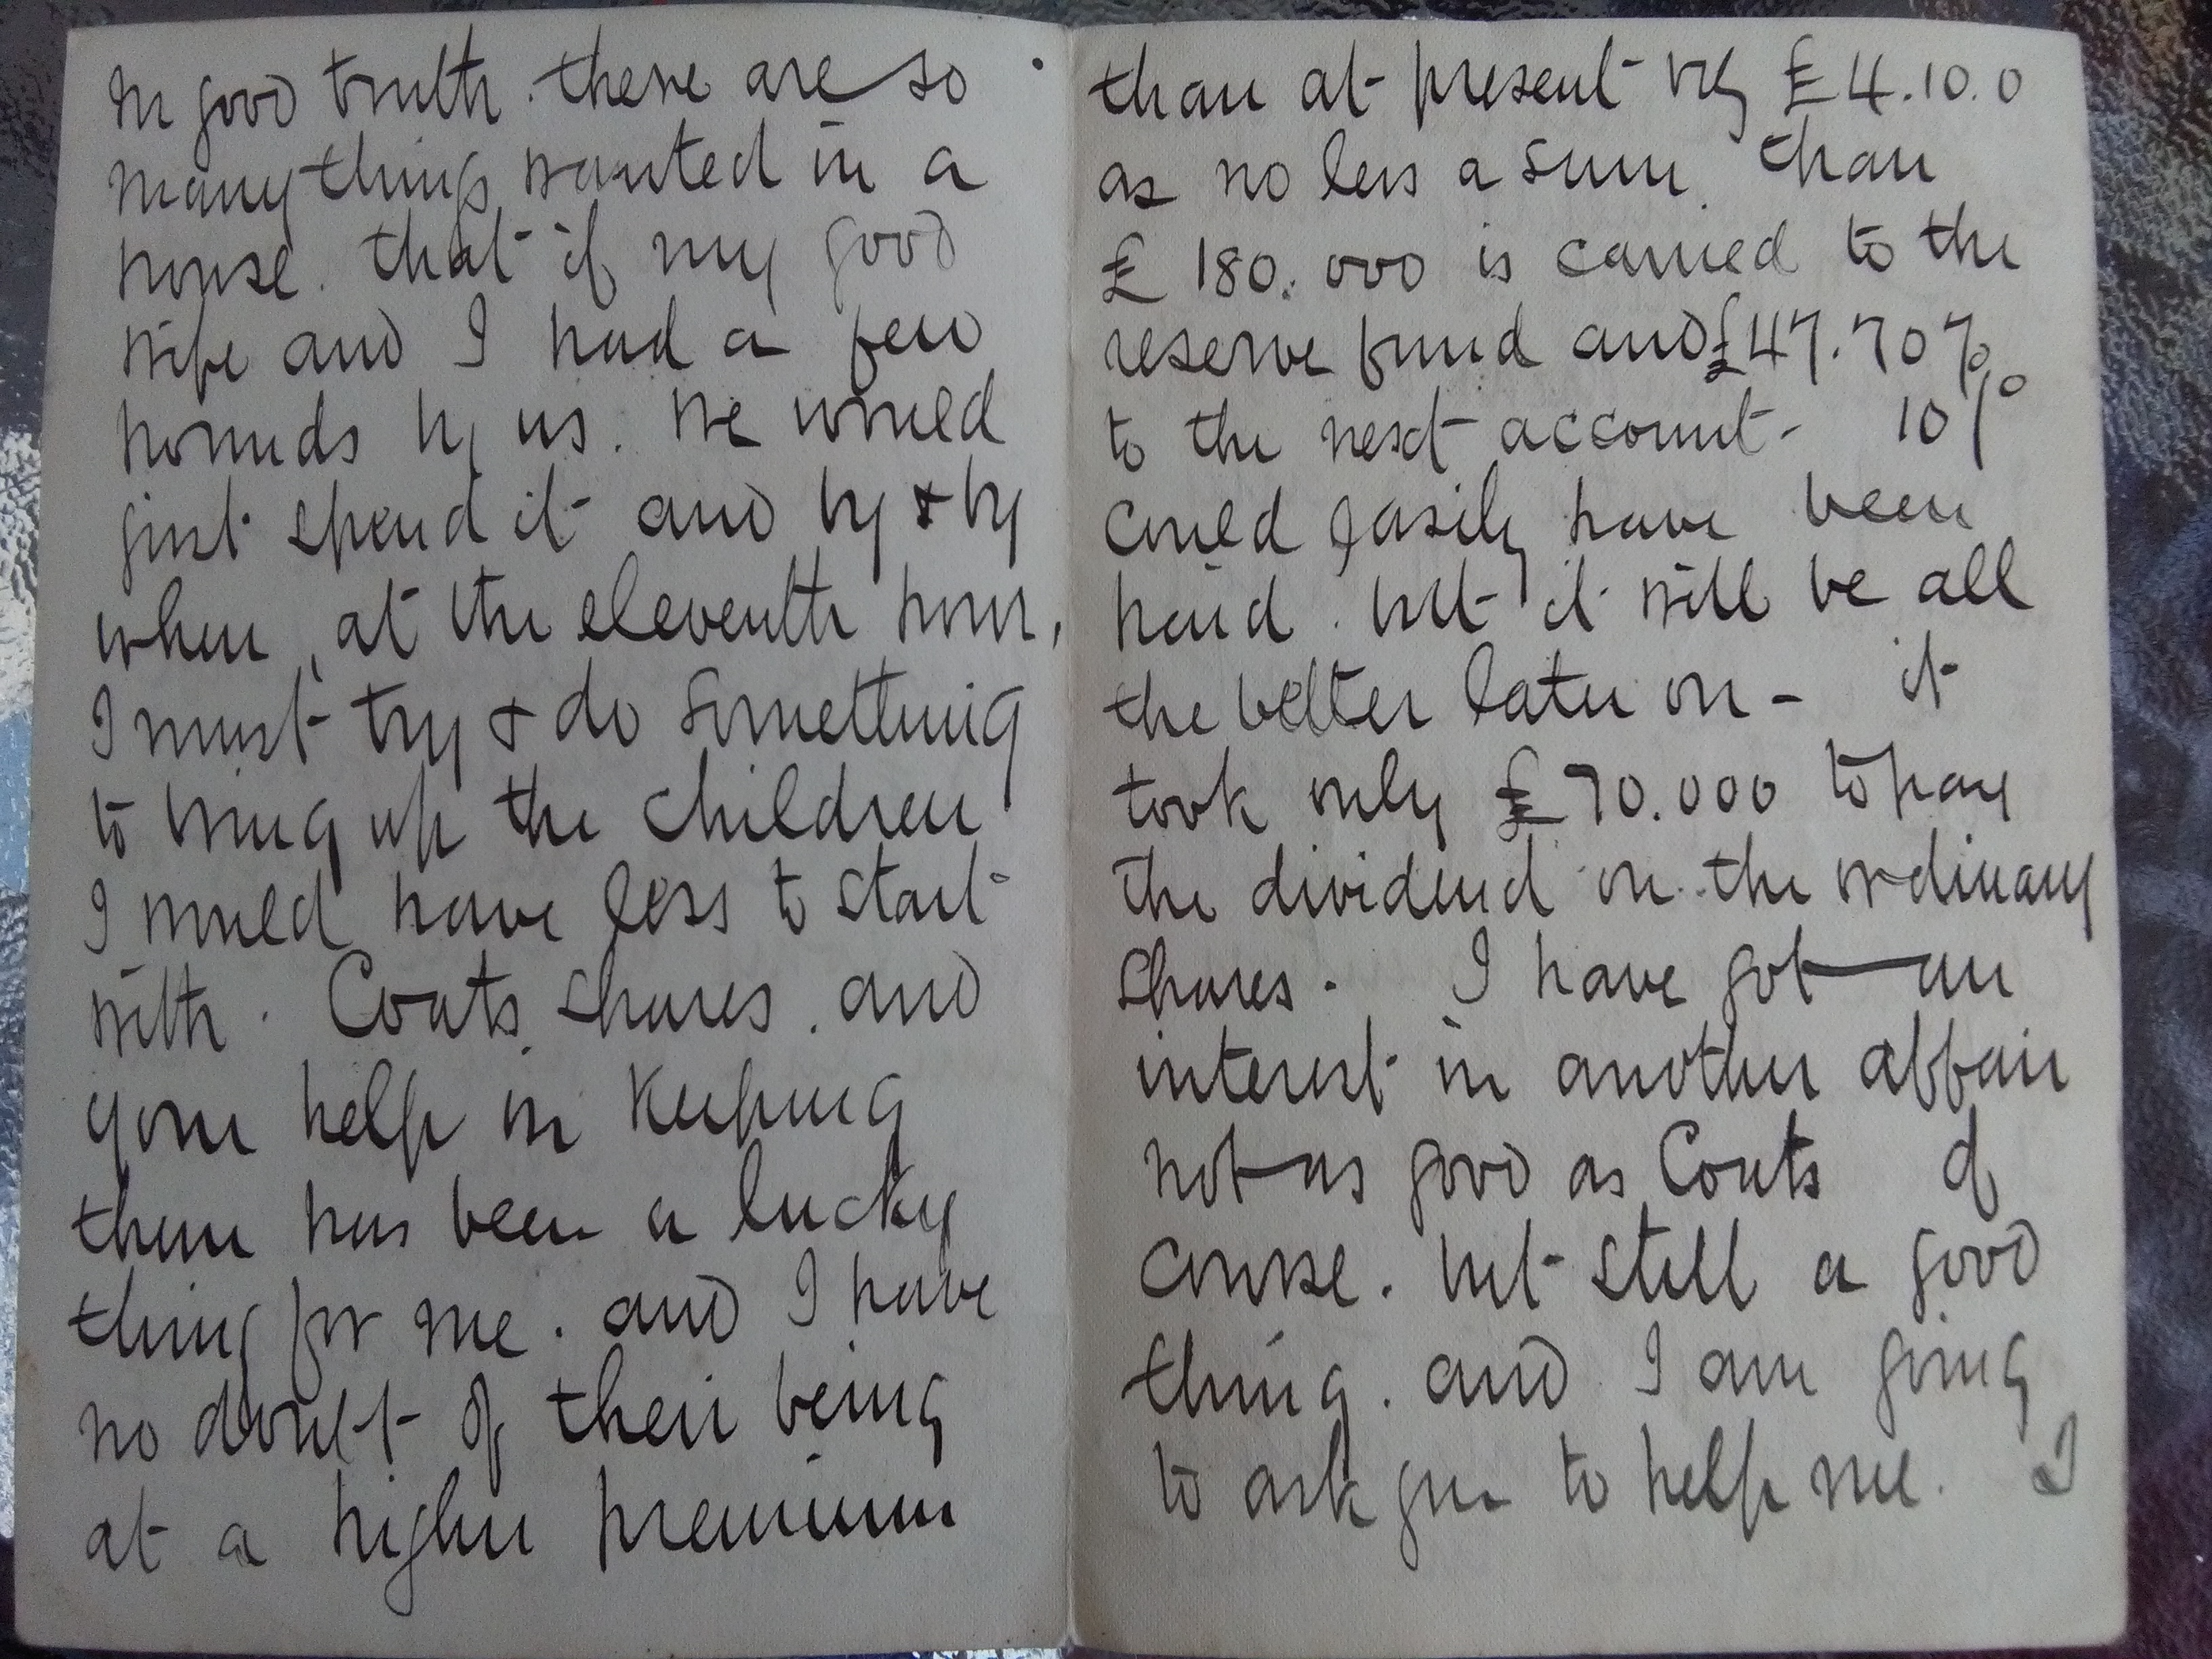 In good truth. there are so
many things wanted in a
house. that if my good
wife and I had a few
pounds by us. We would
just spend it and by & by
when, at the eleventh hour,
I must try & do something
to bring up the children
I would have less to start
with. Coats shares. and
your help in keeping
them has been a lucky
thing for me. and I have
no doubt of their being
at a higher premium
than at present viz £4.10.0
as no less a sum than
£180.000 is carried to the
reserve fund and £47.707
to the next account - 10%
could easily have been
paid. but it will be all
the better later on - it
took only £70.000 to pay
the dividend on the ordinary
shares. I have got an
interest in another affair
not as good as Coats of
course. but still a good
thing. and I am going
to ask you to help me. I